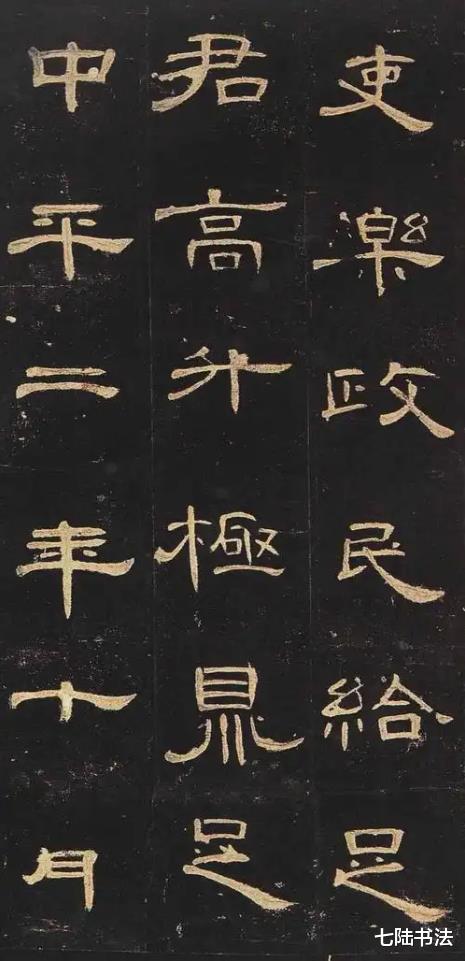 吏樂政民給足
君高升極鼎足
中平二年十月
七陆书法